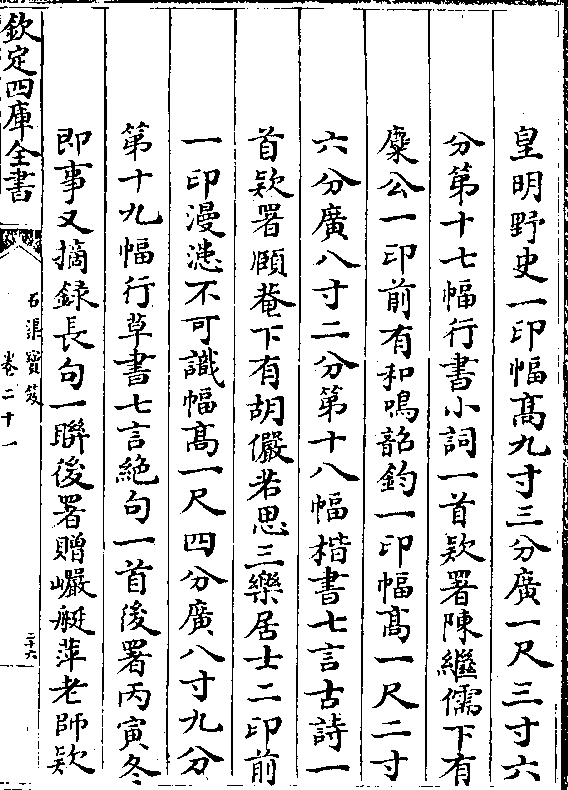 皇明野史一印幅髙九寸三分廣一尺三寸六
分第十七幅行書小詞一首欵署陳繼儒下有
麋公一印前有和鳴韶鈞一印幅髙一尺二寸
六分廣八寸二分第十八幅楷書七言古詩一
首欵署頤菴下有胡儼若思三樂居士二印前
一印漫漶不可識幅髙一尺四分廣八寸九分
第十九幅行草書七言絶句一首後署丙寅冬
即事又摘録長句一聯後署贈巘艇萍老師欵
欽定四庫全書
石渠寶笈
卷二十一
二十六